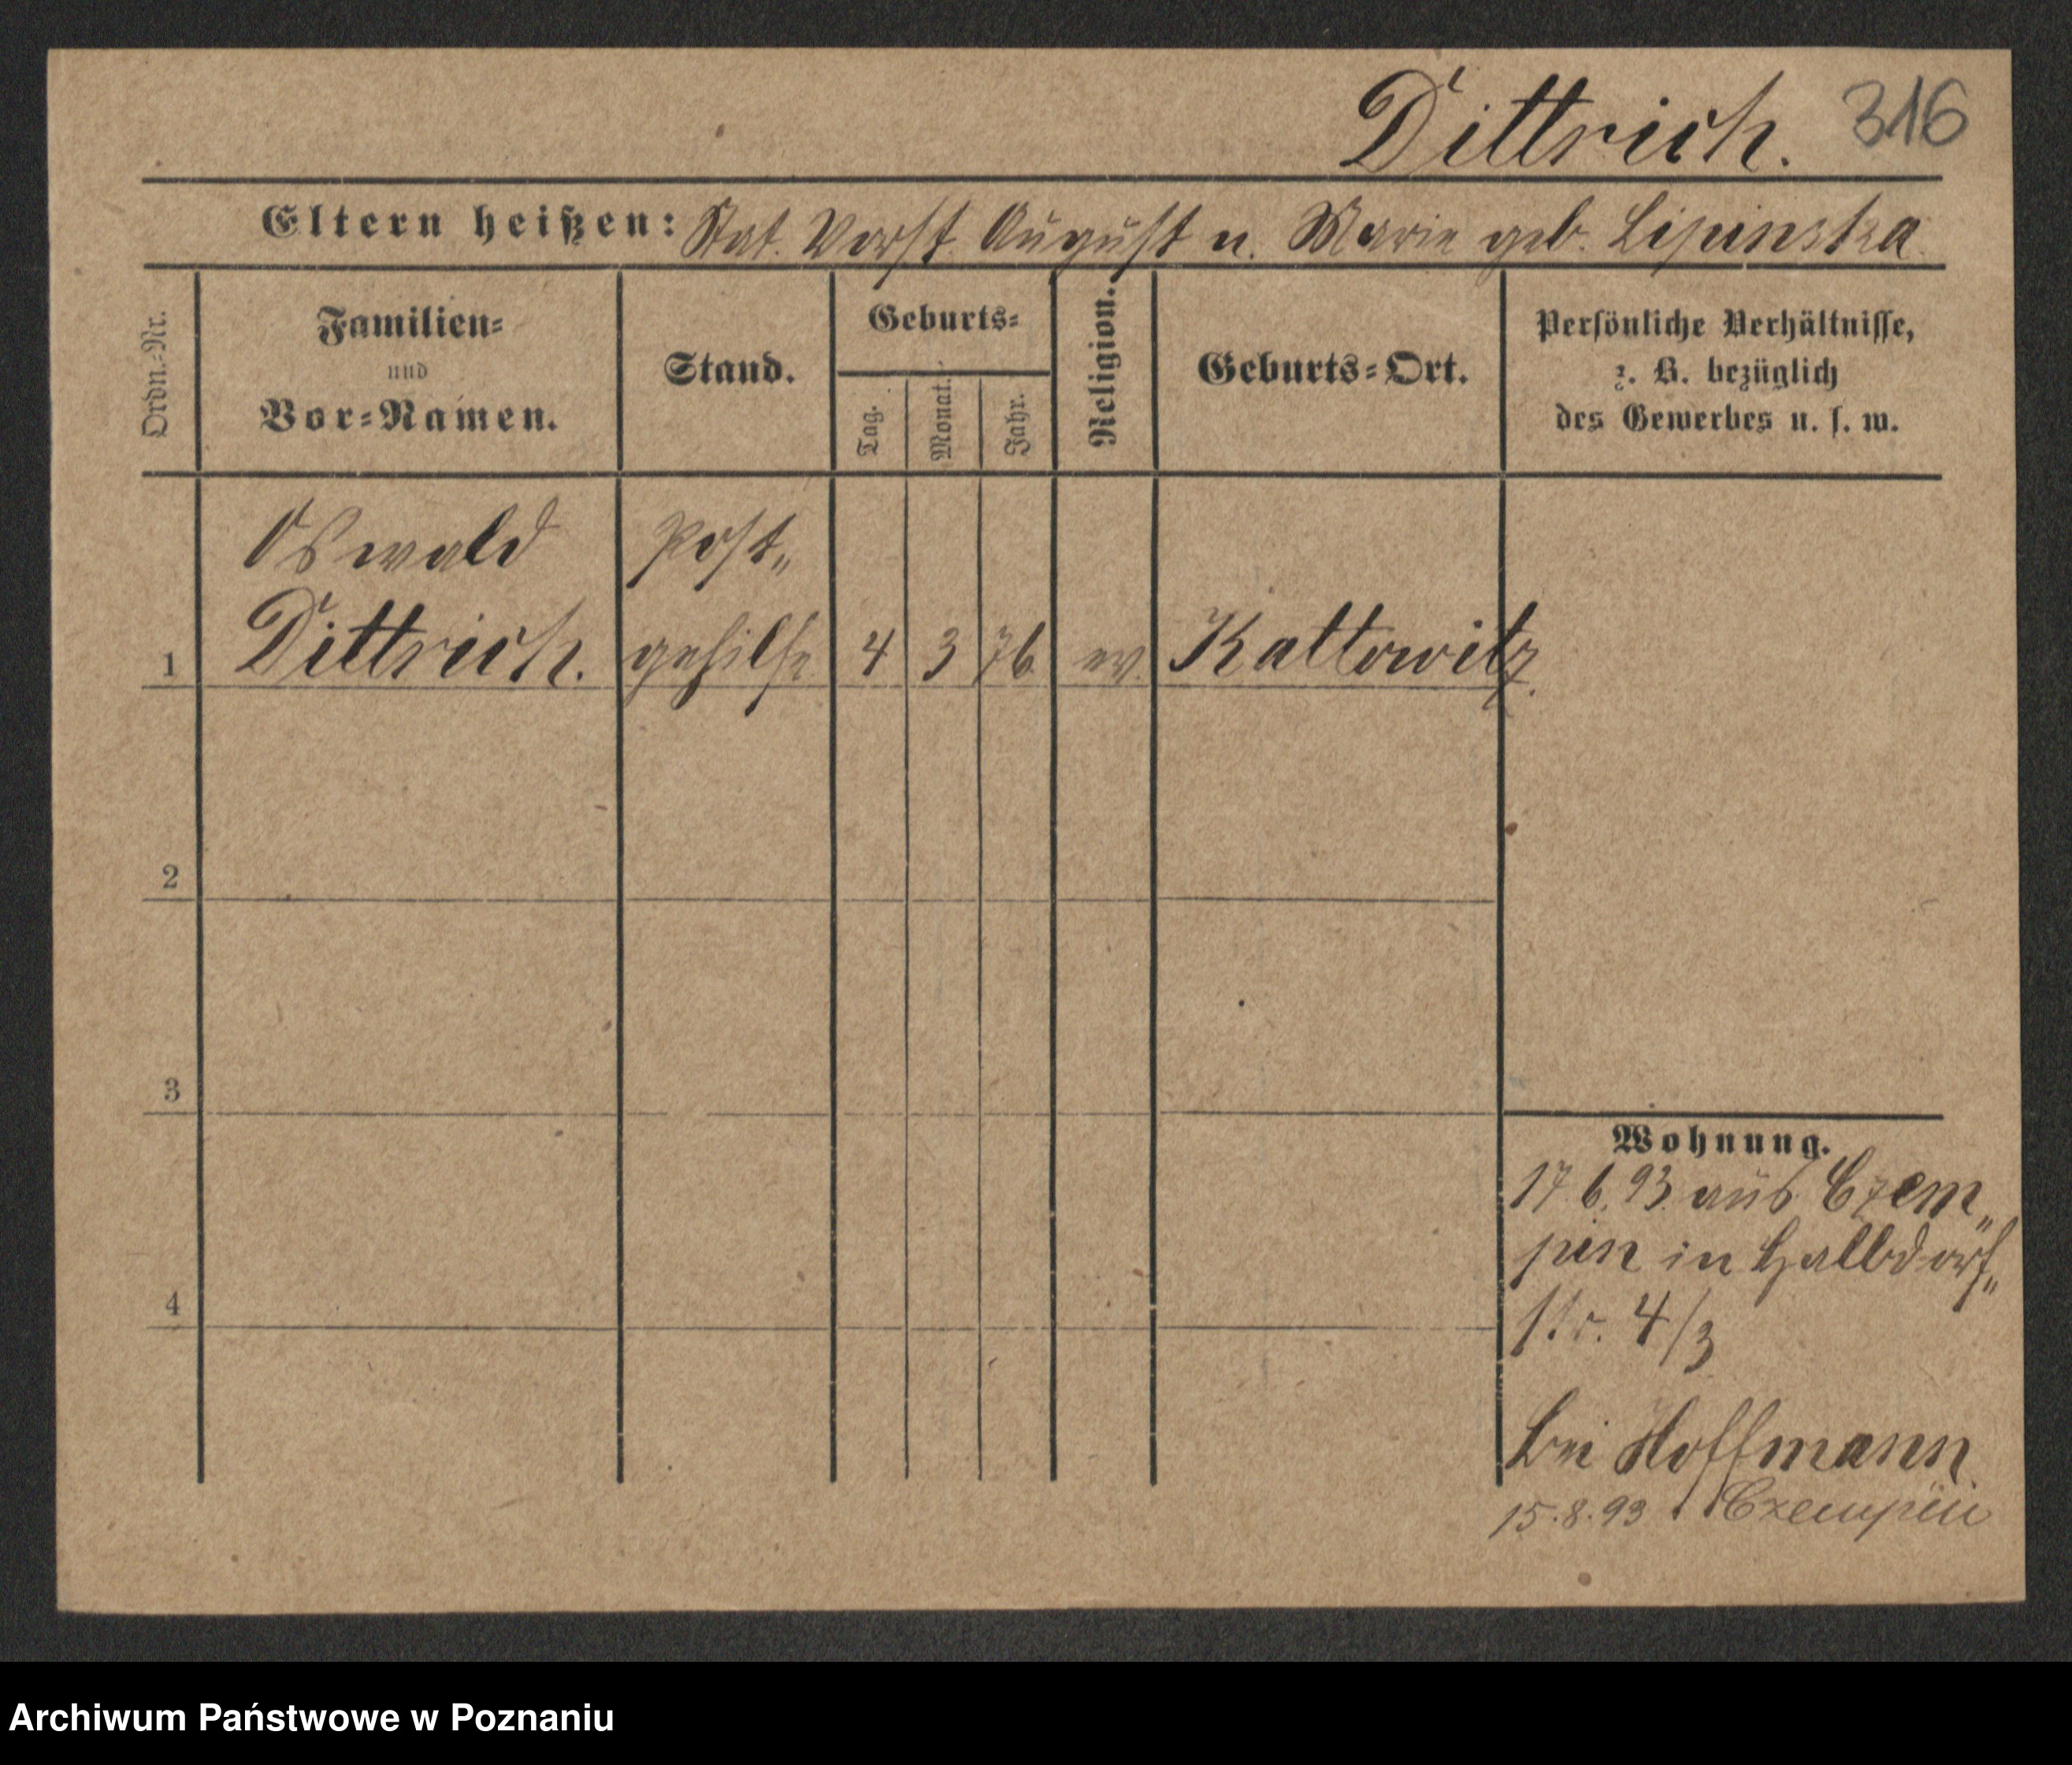 Dittrich. 316
Eltern heißen: Stat. Vorst. August u. Marie geb. Lipinska
Ordn.=Nr.
Familien=
und
Vor=Namen.
Stand.
Geburts=
Tag.
Monat.
Jahr.
Religion.
Geburts=Ort.
Persönliche Verhältnisse,
z. B. bezüglich
des Gewerbes u. s. w.
Oswald Post„
1 Dittrich. gehilfe 4 3 76 ev. Kattowitz.
2
3
4
Wohnung.
17.6.93. aus Czem„
pin in Halbdorf„
str. 4/3
bei Hoffmann
15.8.93 Czempin
Archiwum Państwowe w Poznaniu